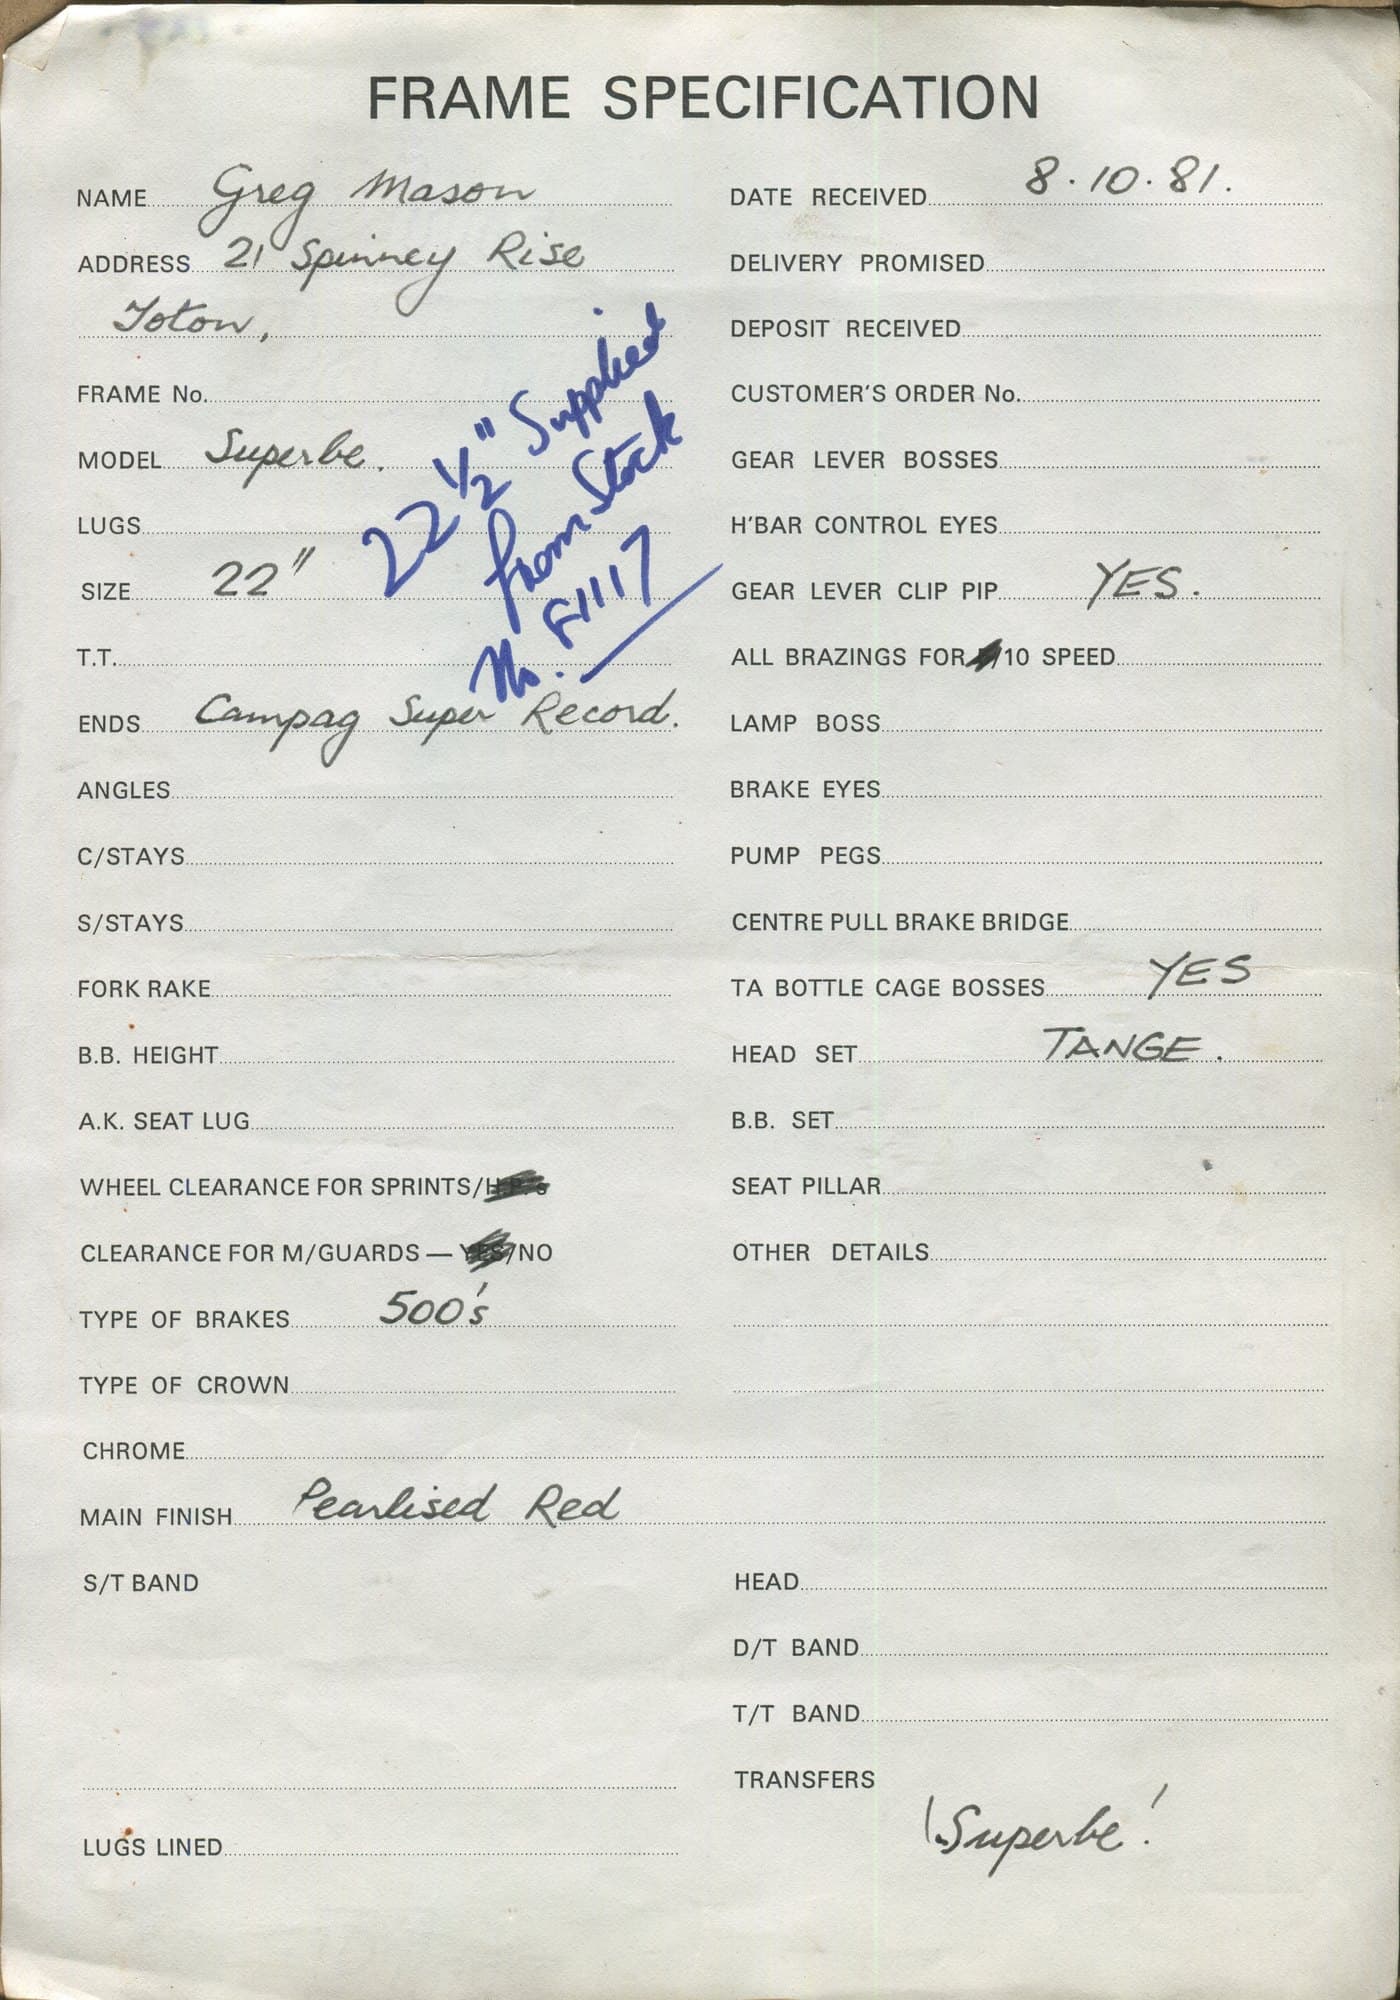 FRAME SPECIFICATION
NAME Greg Mason
ADDRESS 21 Spinney Rise
Toton,
FRAME No.
MODEL Superbe.
LUGS
SIZE 22"
T.T.
ENDS Campag Super Record.
ANGLES
C/STAYS
S/STAYS
FORK RAKE
B.B. HEIGHT
A.K. SEAT LUG
WHEEL CLEARANCE FOR SPRINTS/H.P.'s
CLEARANCE FOR M/GUARDS — YES/NO
TYPE OF BRAKES 500's
TYPE OF CROWN
CHROME
MAIN FINISH Pearlised Red
S/T BAND
LUGS LINED
22 1/2" Supplied
from Stock
No. F1117
DATE RECEIVED 8.10.81.
DELIVERY PROMISED
DEPOSIT RECEIVED
CUSTOMER'S ORDER No.
GEAR LEVER BOSSES
H'BAR CONTROL EYES
GEAR LEVER CLIP PIP YES.
ALL BRAZINGS FOR /10 SPEED
LAMP BOSS
BRAKE EYES
PUMP PEGS
CENTRE PULL BRAKE BRIDGE
TA BOTTLE CAGE BOSSES YES
HEAD SET TANGE.
B.B. SET
SEAT PILLAR
OTHER DETAILS
HEAD
D/T BAND
T/T BAND
TRANSFERS
'Superbe'.